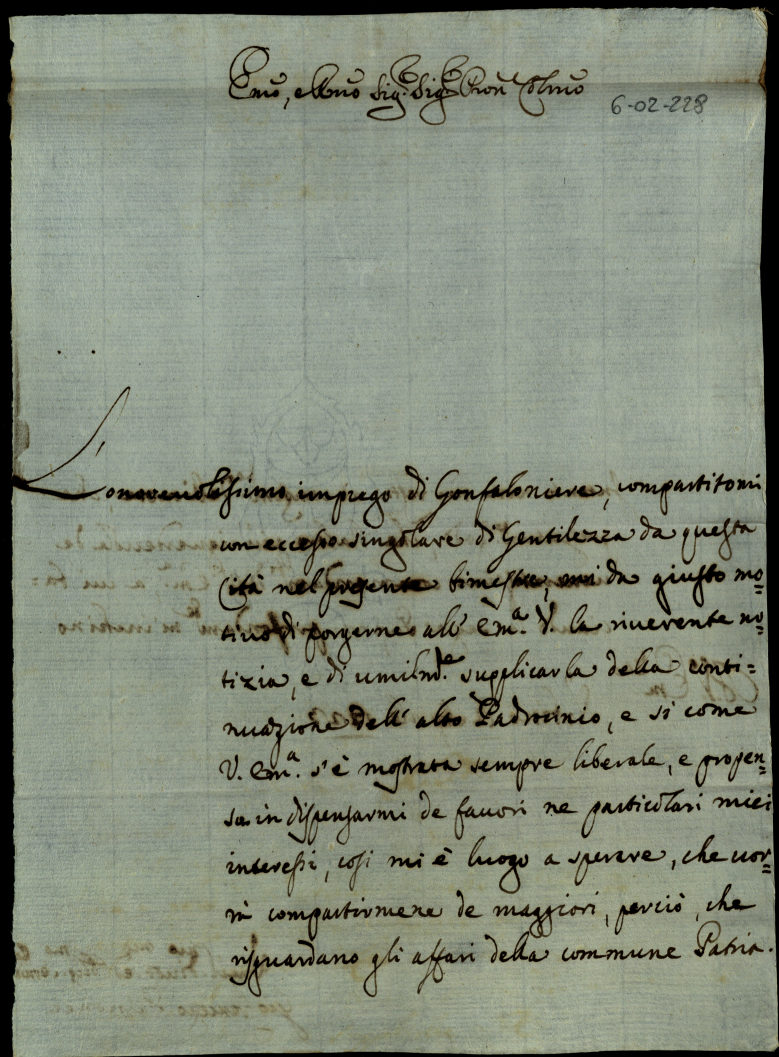 Emo, e Rmo Sig.r Sig.r Pron Colmo
6-02-228
L'onorevolissimo impiego di Gonfaloniere, compartitomi
con eccesso singolare di Gentilezza da questa
Città nel presente bimestre, mi da giusto mo=
tivo di porgerne all' Em.a V. la riverente no=
tizia, e di umilm.te supplicarla della conti=
nuazione dell' alto Padrocinio, e si come
V. Em.a s'è mostrata sempre liberale, e propen=
sa in dispensarmi de favori ne particolari miei
interessi, così mi è luogo a sperare, che vor=
rà compartirmene de maggiori, perciò, che
risguardano gli affari della commune Patria.